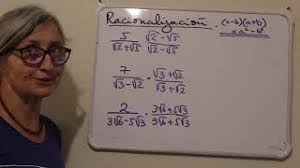 Racionalización (a-b)(a+b)
= a² - b²
5/(√2+√5) · (√2-√5)/(√2-√5)
7/(√3-√2) · (√3+√2)/(√3+√2)
2/(3√6-5√3) · (3√6+5√3)/(3√6+5√3)